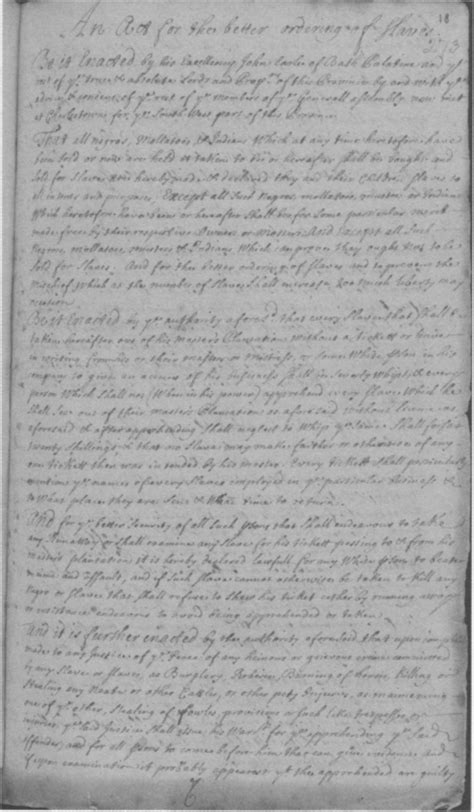 18
An Act for the better ordering of Slaves
Be it Enacted by his Excellency John Earle of Bath Palatine and ye
of ye true & absolute Lords and of this Province by and with ye
& consent of ye rest of ye members of ye Generall assembly now mett
at Charlestowne for ye South West part of this Province
That all negroes, Mollatoes, & Indians which at any time heretofore have
been sold or now are held or taken to be or hereafter shall be bought and
sold for Slaves are hereby made & declared they and their Children Slaves to
all intents and purposes, Except all such negroes, mollatoes, or Indians
which heretofore have been or hereafter shall be for some particular merit
made free by their respective Owners or Masters And Except all such
negroes, mollatoes, & Indians which can prove they ought not to be
sold for Slaves. And for the better ordering of Slaves and to prevent the
mischief which as the number of Slaves shall increase too much liberty may
occasion
Be it Enacted by ye authority aforesd. that every Slave that shall be
taken hereafter out of his master's Plantation without a Tickett or leave
in writing from his or their master or mistress, or some White Person in his
company to give an account of his business shall be whipt & every
person which shall not (when in his power) apprehend every Slave which he
shall see out of their master's Plantations as aforesaid without leave as
aforesaid & after apprehending shall neglect to whip ye same shall forfeit
twenty shillings, & that no Slave may make farther or other use of any
one tickett then was intended by his master, Every tickett shall particularly
mention ye names of every Slave employed in ye particular business &
to what place they are sent & what time to return.
And for ye better security of all such persons that shall endeavour to take
any runaway or shall examine any Slave for his tickett passing to & from his
master's plantation it is hereby declared lawfull for any White person to beate
maime and assault, and if such Slave cannot otherwise be taken to kill any
Negro or Slave that shall refuse to shew his tickett either by running away
or resistance endeavour to avoid being apprehended or taken.
And it is further enacted by the authority aforesaid that upon complaint
made to any Justice of ye Peace of any heinous or grievous crime committed
by any Slave or Slaves, as Burglary, Robbery, Burning of houses, Killing or
stealing any Neate or other Cattle, or other petty Injuries, as maiming
one of ye other, stealing of fowles provisions or such like trespasses or
injuries ye said Justice shall issue his Warrt. for ye apprehending ye said
offenders, and for all persons to come before him that can give evidence and
if upon examination it probably appeareth yt the apprehended are guilty